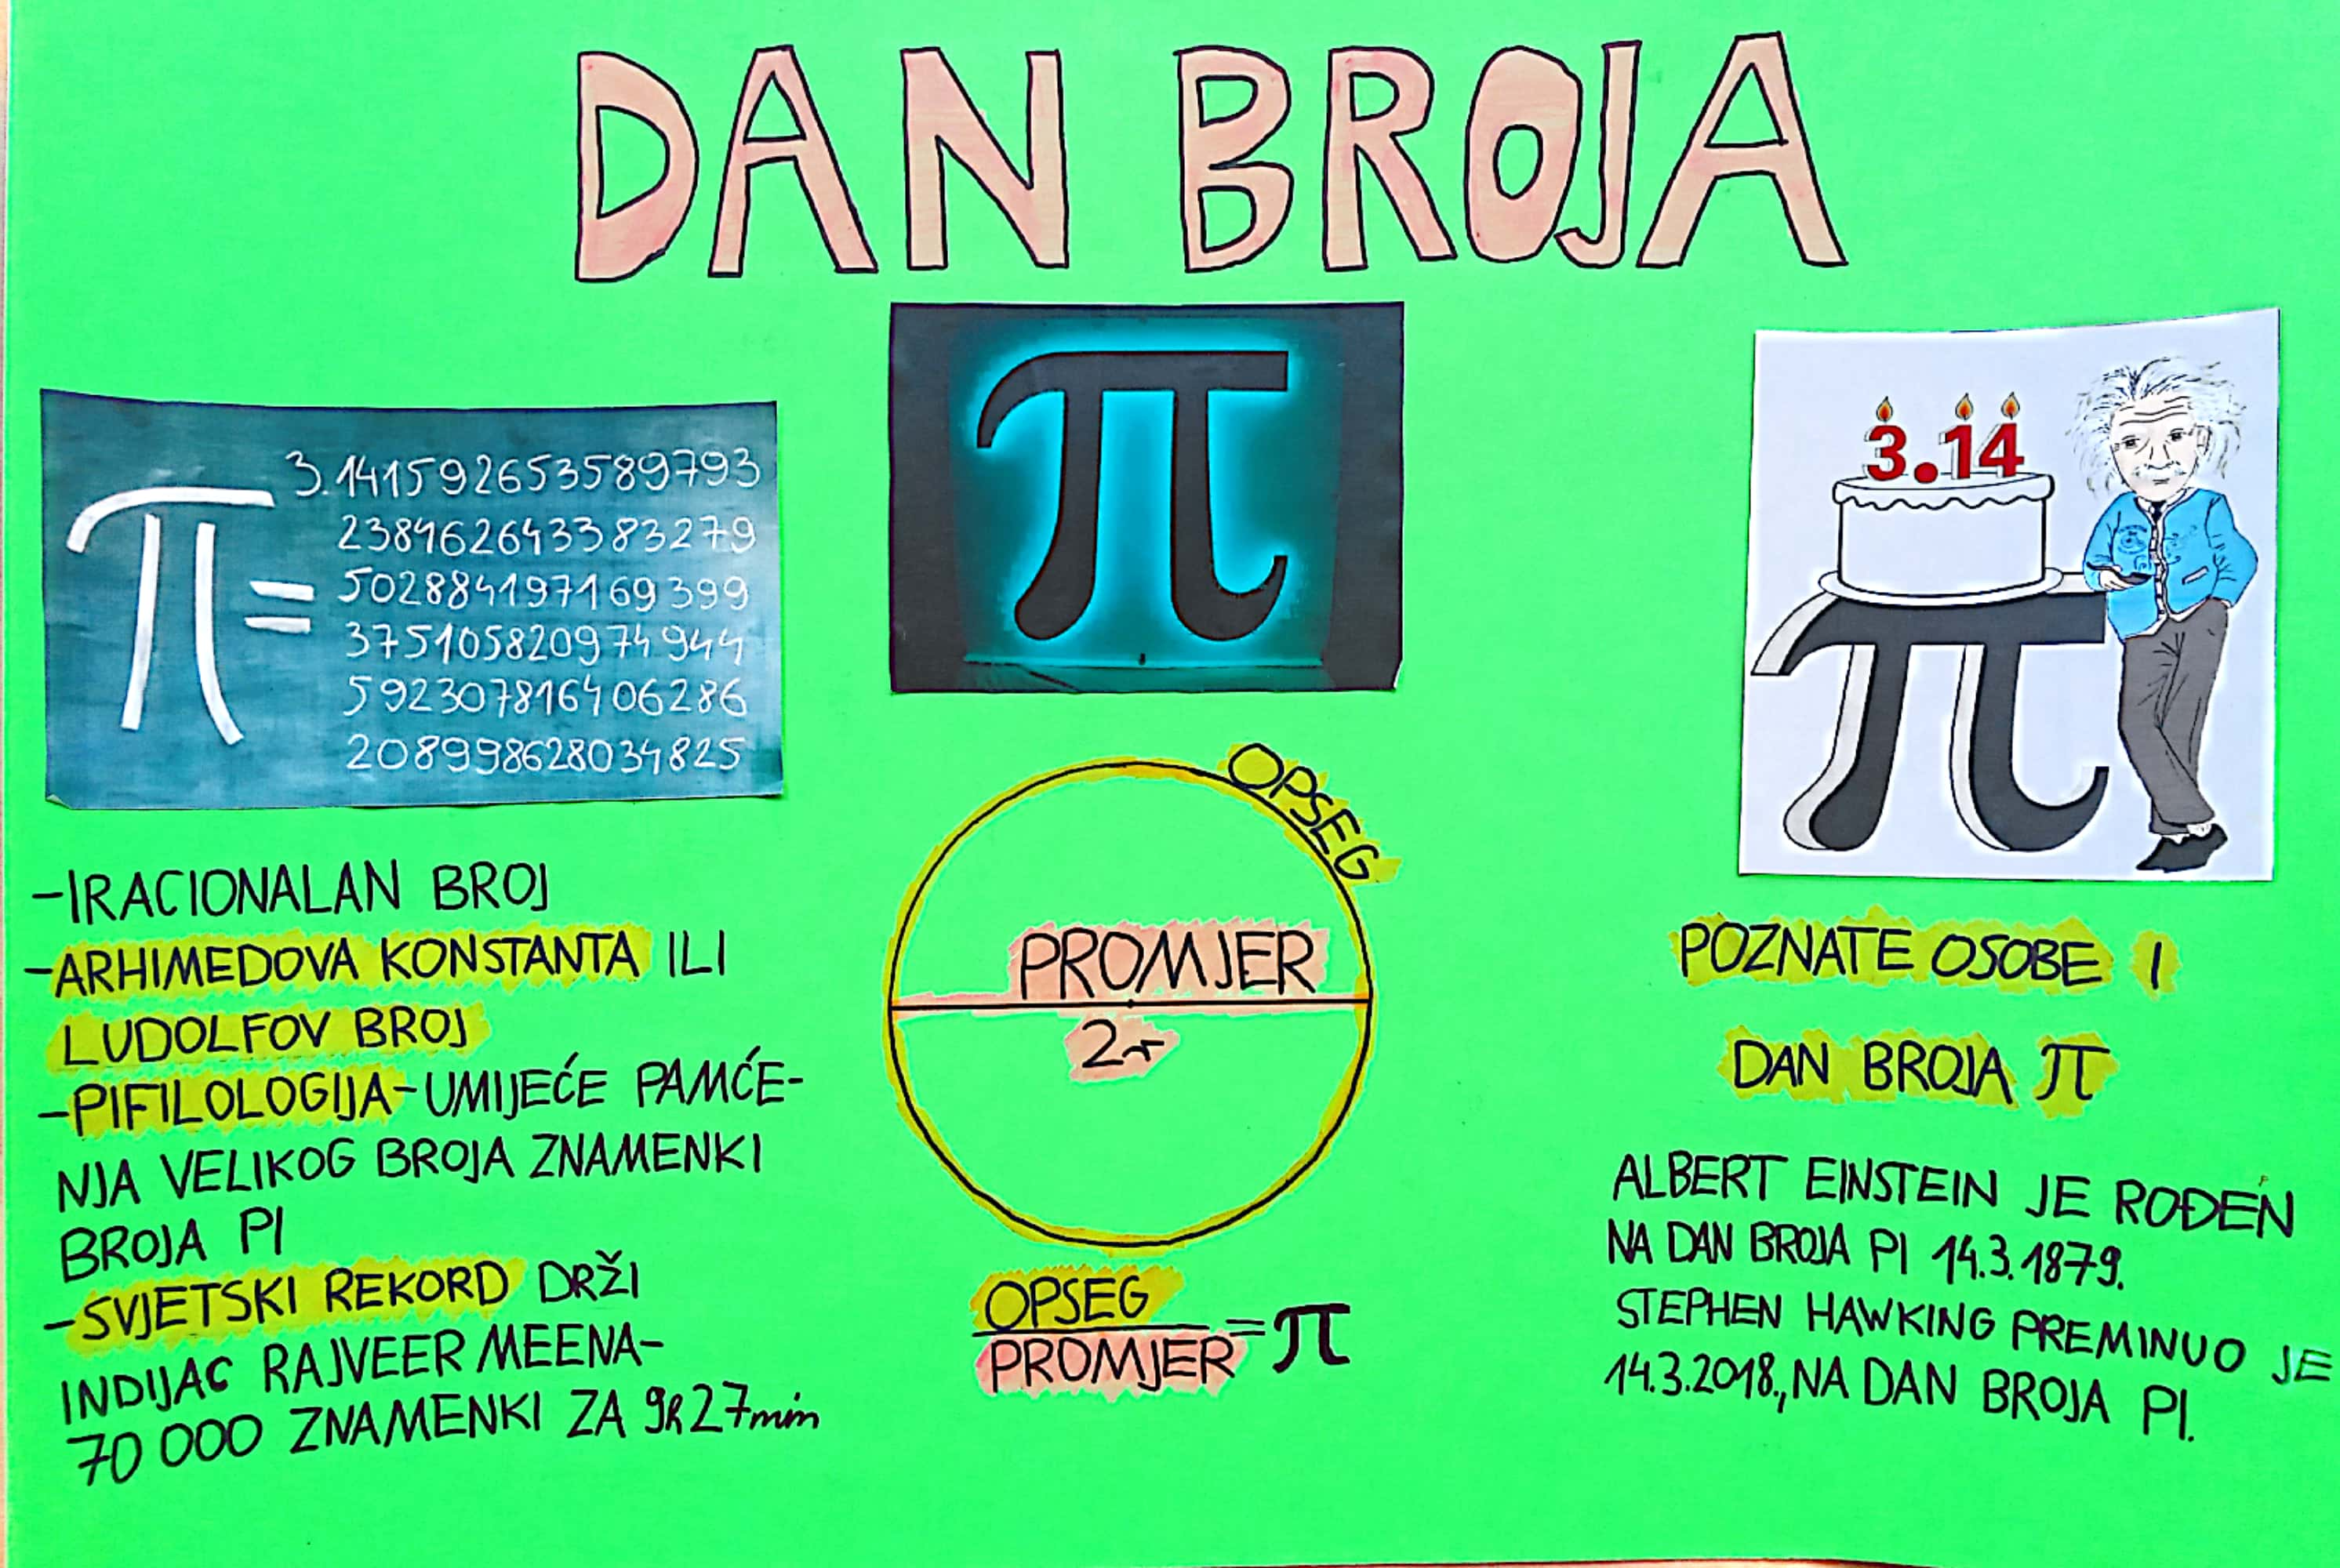 DAN BROJA
π
π=
3.141592653589793
238462643383279
502884197169399
375105820974944
592307816406286
208998628034825
3.14
π
-IRACIONALAN BROJ
-ARHIMEDOVA KONSTANTA ILI
LUDOLFOV BROJ
-PIFILOLOGIJA-UMIJEĆE PAMĆE-
NJA VELIKOG BROJA ZNAMENKI
BROJA PI
-SVJETSKI REKORD DRŽI
INDIJAC RAJVEER MEENA-
70 000 ZNAMENKI ZA 9h27min
OPSEG
PROMJER
2r
OPSEG
PROMJER = π
POZNATE OSOBE I
DAN BROJA π
ALBERT EINSTEIN JE ROĐEN
NA DAN BROJA PI 14.3.1879.
STEPHEN HAWKING PREMINUO JE
14.3.2018., NA DAN BROJA PI.